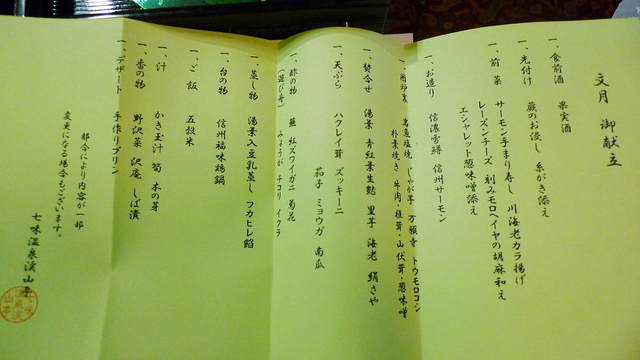 文月 御献立
一、食前酒 果実酒
一、先付け 蕨のお浸し 糸がき添え
一、前菜 サーモン手まり寿し 川海老カラ揚げ
レーズンチーズ 刻みモロヘイヤの胡麻和え
エシャレット葱味噌添え
一、お造り 信濃雪鱒 信州サーモン
岩魚塩焼 じゃが芋 万願寺 トウモロコシ
朴葉焼き 牛肉・椎茸・山伏茸・葱味噌
一、焚合せ 湯葉 青紅葉生麩 里芋 海老 絹さや
一、天ぷら ハクレイ茸 ズッキーニ
茄子 ミョウガ 南瓜
一、酢の物 蕪 紅ズワイガニ 菊花
みょうが チコリ イクラ
一、蒸し物 湯葉入豆乳蒸し フカヒレ餡
一、台の物 信州福味鶏鍋
一、ご飯 五穀米
一、汁 かき玉汁 筍 木の芽
一、香の物 野沢菜 沢庵 しば漬
一、デザート 手作りプリン
都合により内容が一部
変更になる場合もございます。
七味温泉渓山亭